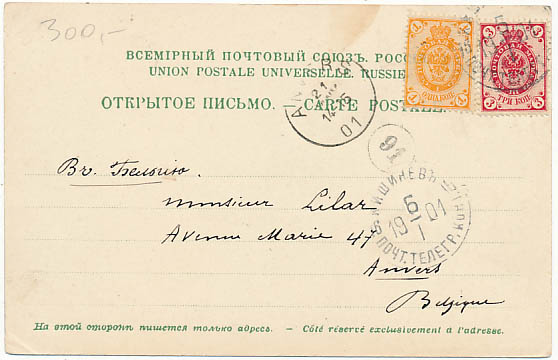 300,-
ВСЕМІРНЫЙ ПОЧТОВЫЙ СОЮЗЪ. РОСС
UNION POSTALE UNIVERSELLE. RUSSIE
ОТКРЫТОЕ ПИСЬМО. — CARTE POSTALE.
1 1
ОДНА КОП.
1 1
3 3
ТРИ КОП.
3 3
21
14-15
01
91
КИШИНЕВЪ
6
19 01
I
ПОЧТ. ТЕЛЕГР. КОН.
Въ Бельгію
Monsieur Lilar
Avenue Marie 47
Anvers
Belgique
На этой сторонѣ пишется только адресъ. — Côté réservé exclusivement à l'adresse.